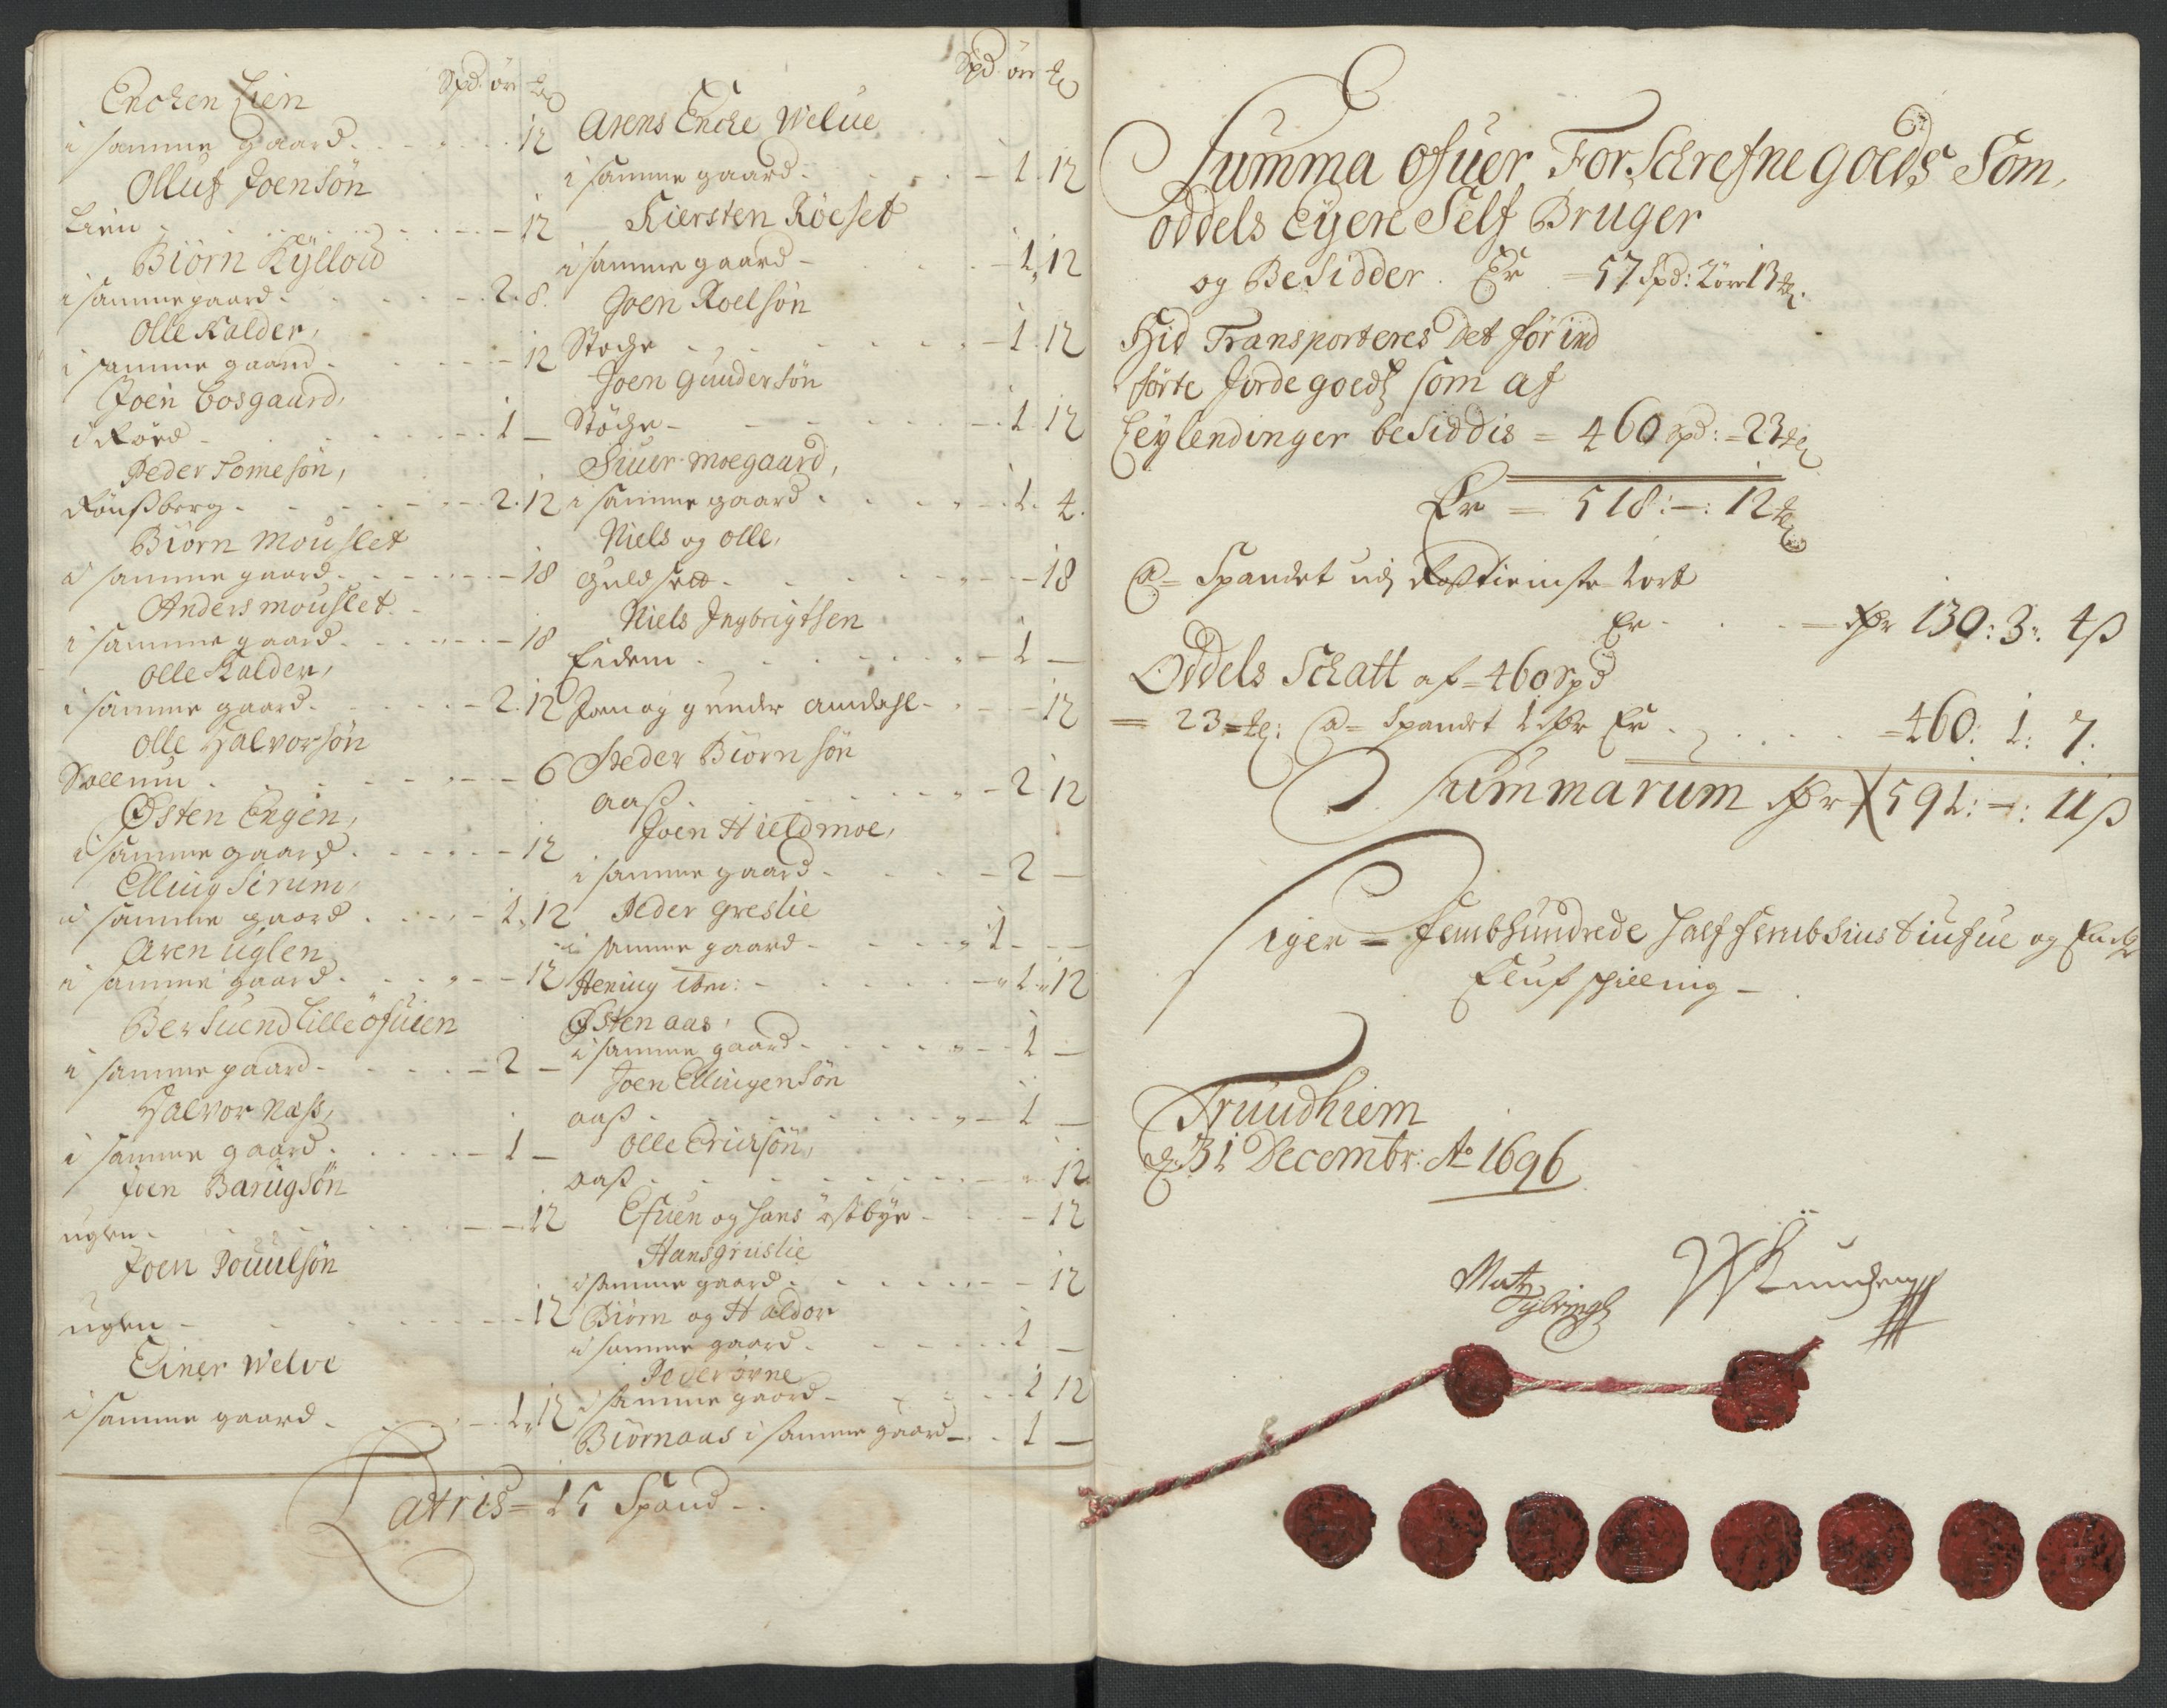 Spd. ör
Enchen Lien
i samme gaard - 12
Olluf Joensön
Lien - 12
Biörn Kÿlloid
i samme gaard - 2. 8.
Olle Kalder,
i samme gaard - 12
Joen Bosgaard,
i Röed - 1 —
Peder Tomesön,
Rönsberg - 2. 12
Biörn Mouslet
i samme gaard - 18
Anders mouslet
i samme gaard - 18
Olle Kalder,
i samme gaard - 2. 12
Olle Halvorsön
Sollum - 6
Östen Engen,
i samme gaard - 12
Elling Sirum,
i samme gaard - 1. 12
Aren Uglen
i samme gaard - 12
Bersuend Lilleöfuien
i samme gaard - 2 —
Halvor Næss,
i samme gaard - 1 —
Joen Barugsön
uglen - 12
Joen Pouulsön
uglen - 12
Einer Welve
i samme gaard - 1. 12
Spd ör
Arens Enche Welue
i samme gaard - 1. 12
Kiersten Röeset
i samme gaard - 1. 12
Joen Roelsön
Stoche - 1. 12
Joen Gundersön
Stöche - 1. 12
Siuer Moegaard,
i samme gaard - 1. 4.
Niels og Olle,
Guldset - 18
Niels Ingbrigtsen
Eidem - 1 —
Joen og gunder Amdahl - 12
Peder Biörnsön
Aass - 2. 12
Joen Hieldmoe,
i samme gaard - 2 —
Peder Greslie
i samme gaard - 1 —
Hening ibm: - 1. 12
Östen Aas,
i samme gaard - 1 —
Joen Ellingensön
aass - 1 —
Olle Erichsön,
aass - 12
Efuen og Hans östbye - 12
Hans grüslie
i samme gaard - 12
Biörn og Haldor
i samme gaard - 1 —
Peder örne
i samme gaard - 1 12
Biörn aas i samme gaard - 1 —
Latris = 15 Spand -
Summa ofuer Forschrefne goeds Som,
Oddels Eyere Self Bruger
og Besidder. Er = 57 Spd: 2 öre 13
Hid Transporteres Det för ind
förte Jordegoeds som af
Leylendinger besiddis = 460 Spd: = 23
Er = 518: —: 12
@ = Spandet udj Rostieniste 1 ort
Er - 130: 3: 4 ß
Oddels Schatt af = 460 Spd
= 23 @ = Spandet 1 Er = 460: 1: 7.
Summarum 591: —: 11 ß
siger = Fembhundrede halffembsindstiufue og En
Elluf schilling —
Trundhiem
d. 31 Decembr: Ao 1696